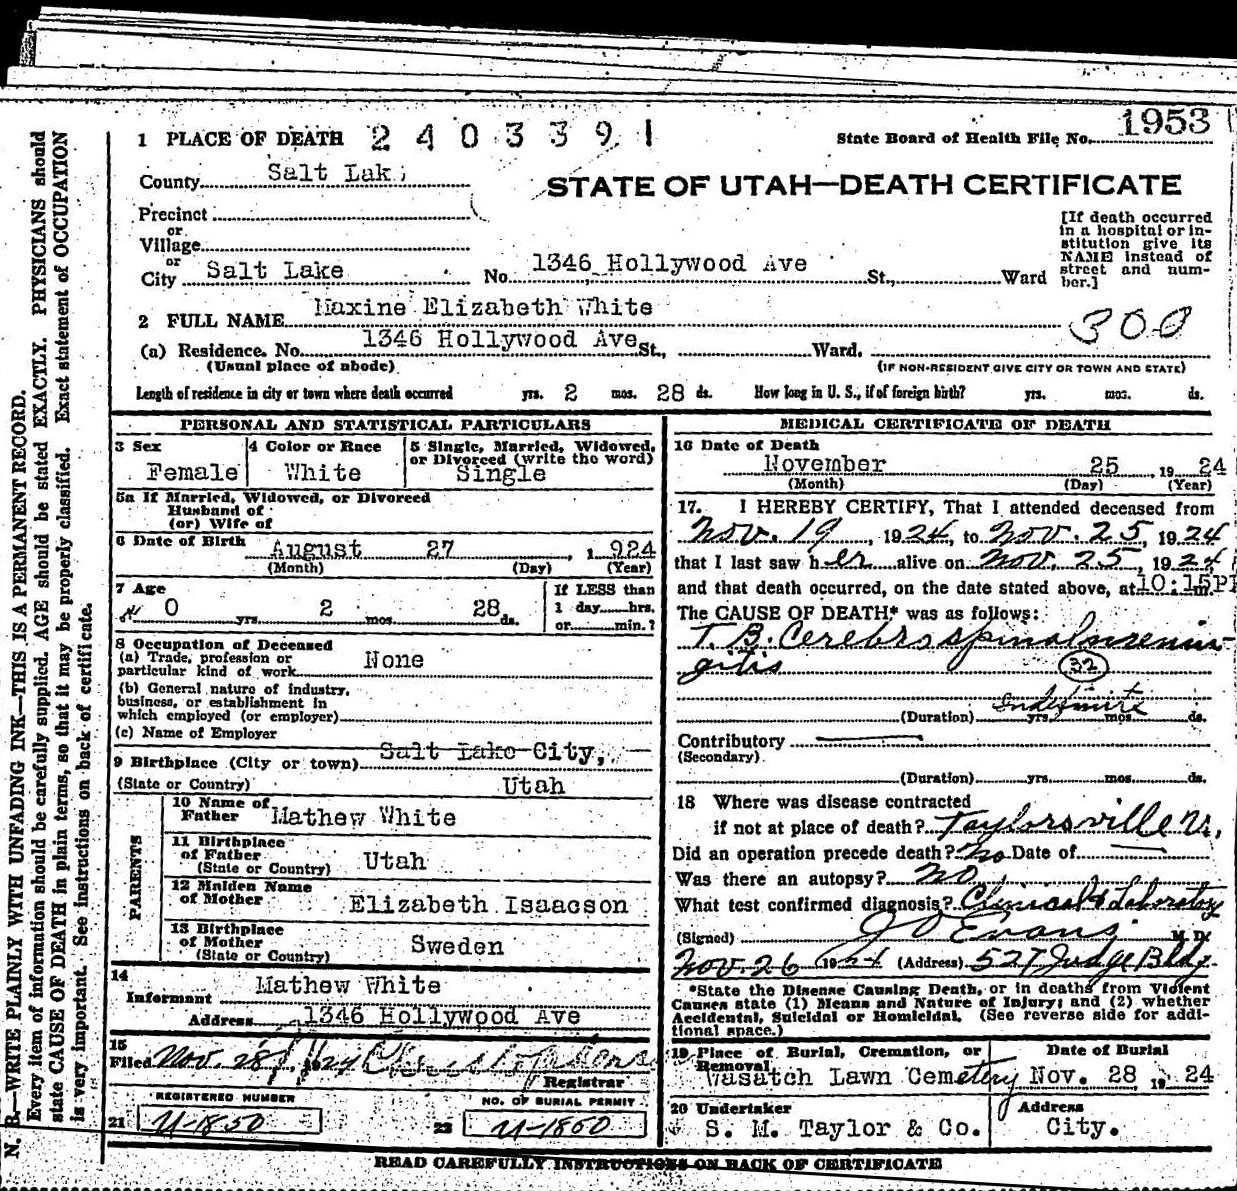 1953
1 PLACE OF DEATH 2 4 0 3 3 9 1 State Board of Health File No.
County Salt Lak
STATE OF UTAH—DEATH CERTIFICATE
Precinct
or
Village
or
City Salt Lake No. 1346 Hollywood Ave St., Ward
[If death occurred
in a hospital or in-
stitution give its
NAME instead of
street and num-
ber.]
2 FULL NAME Maxine Elizabeth White
300
(a) Residence. No. 1346 Hollywood Ave St., Ward.
(Usual place of abode) (IF NON-RESIDENT GIVE CITY OR TOWN AND STATE)
Length of residence in city or town where death occurred yrs. 2 mos. 28 ds. How long in U. S., if of foreign birth? yrs. mos. ds.
PERSONAL AND STATISTICAL PARTICULARS
3 Sex 4 Color or Race 5 Single, Married, Widowed,
or Divorced (write the word)
Female White Single
5a If Married, Widowed, or Divorced
Husband of
(or) Wife of
6 Date of Birth August 27 , 1 924
(Month) (Day) (Year)
7 Age If LESS than
0 yrs. 2 mos. 28 ds. 1 day hrs.
or min.?
8 Occupation of Deceased
(a) Trade, profession or
particular kind of work None
(b) General nature of industry,
business, or establishment in
which employed (or employer)
(c) Name of Employer
9 Birthplace (City or town) Salt Lake City,
(State or Country) Utah
PARENTS
10 Name of
Father Mathew White
11 Birthplace
of Father
(State or Country) Utah
12 Maiden Name
of Mother Elizabeth Isaacson
13 Birthplace
of Mother
(State or Country) Sweden
14
Informant Mathew White
Address 1346 Hollywood Ave
15
Filed Nov. 28, 1924
Registrar
REGISTERED NUMBER NO. OF BURIAL PERMIT
21 U-1850 22 U-1850
MEDICAL CERTIFICATE OF DEATH
16 Date of Death
November 25 , 19 24
(Month) (Day) (Year)
17. I HEREBY CERTIFY, That I attended deceased from
Nov. 19, 1924, to Nov. 25, 1924
that I last saw her alive on Nov. 25, 1924,
and that death occurred, on the date stated above, at 10:15P m.
The CAUSE OF DEATH* was as follows:
T. B. Cerebrospinal menin-
gitis
32
(Duration) Indefinite yrs. mos. ds.
Contributory
(Secondary)
(Duration) yrs. mos. ds.
18 Where was disease contracted
if not at place of death? Taylorsville U.
Did an operation precede death? No Date of
Was there an autopsy? No
What test confirmed diagnosis? Clinical & Laboratory
(Signed) J O Evans M. D.
Nov. 26 1924 (Address) 527 Judge Bldg.
*State the Disease Causing Death, or in deaths from Violent
Causes state (1) Means and Nature of Injury; and (2) whether
Accidental, Suicidal or Homicidal. (See reverse side for addi-
tional space.)
19 Place of Burial, Cremation, or Removal Date of Burial
Wasatch Lawn Cemetery Nov. 28 19 24
20 Undertaker Address
S. M. Taylor & Co. City.
READ CAREFULLY INSTRUCTIONS ON BACK OF CERTIFICATE
N. B.—WRITE PLAINLY WITH UNFADING INK—THIS IS A PERMANENT RECORD.
Every item of information should be carefully supplied. AGE should be stated EXACTLY. PHYSICIANS should
state CAUSE OF DEATH in plain terms, so that it may be properly classified. Exact statement of OCCUPATION
is very important. See instructions on back of certificate.